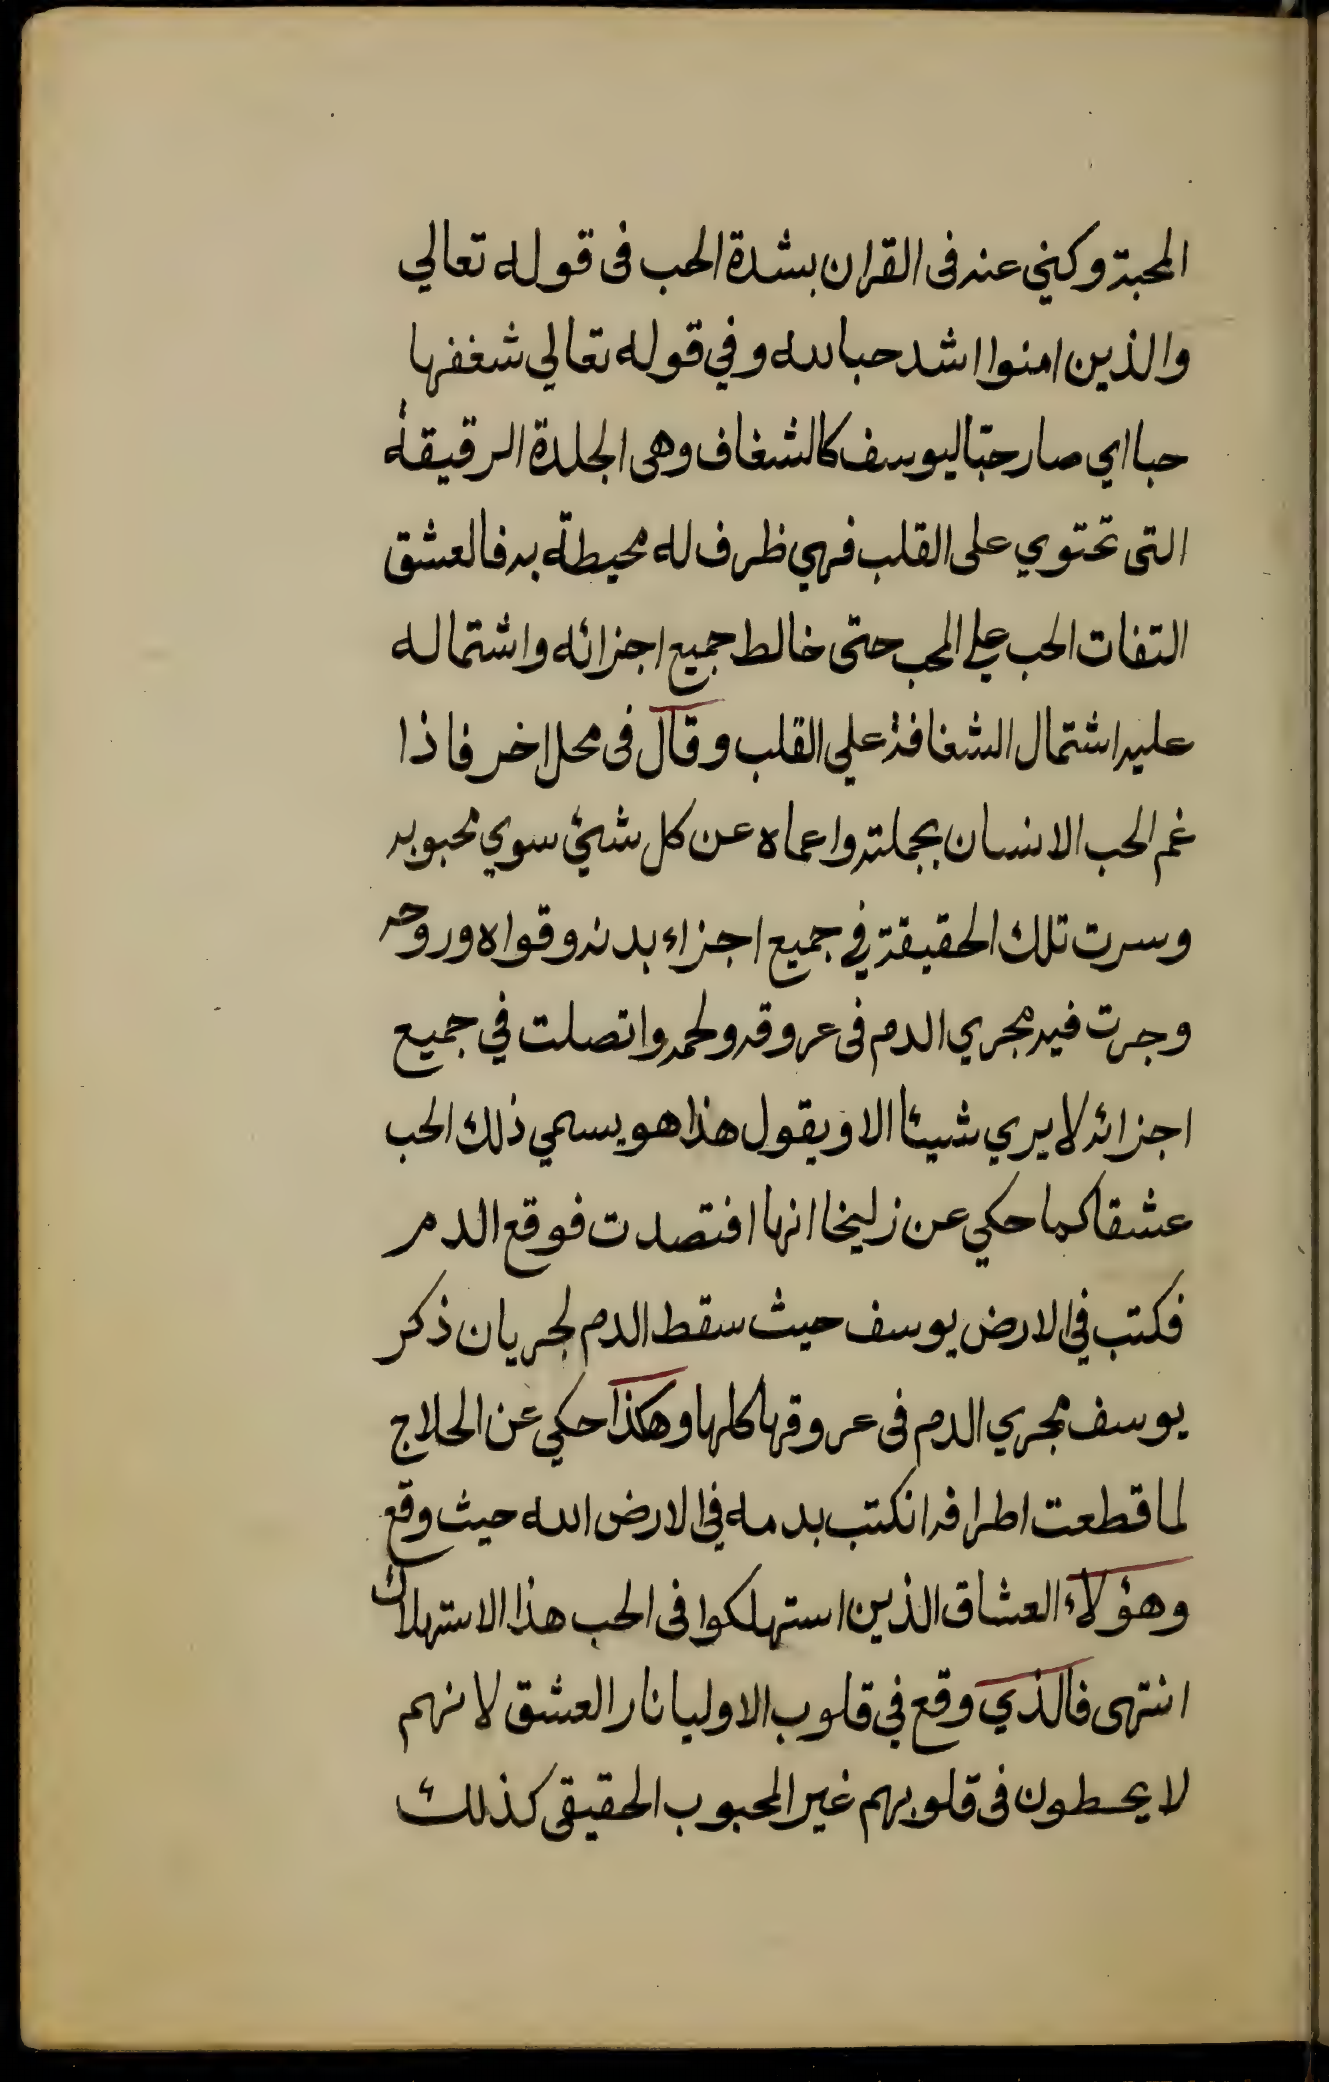 المحبة وكني عنه في القران بشدة الحب فى قوله تعالي
والذين امنوا اشد حبا لله وفي قوله تعالي شغفها
حبا اي صار حبّا ليوسف كالشغاف وهى الجلدة الرقيقة
التى تحتوي على القلب فهي ظرف له محيطة به فالعشق
التفات الحب علي المحب حتى خالط جميع اجزائه واشتماله
عليه اشتمال الشغافة علي القلب وقال فى محل اخر فاذا
غم الحب الانسان بجملته واعماه عن كل شيئ سوي محبوبه
وسرت تلك الحقيقة في جميع اجزاء بدنه وقواه وروحه
وجرت فيه مجري الدم فى عروقه ولحمه واتصلت في جميع
اجزائه لا يري شيئا الا ويقول هذا هو يسمي ذلك الحب
عشقا كما حكي عن زليخا انها افتصدت فوقع الدم
فكتب في الارض يوسف حيث سقط الدم لجريان ذكر
يوسف مجري الدم فى عروقها كلها وهكذا حكي عن الحلاج
لما قطعت اطرافه انكتب بدمه في الارض الله حيث وقع
وهؤلاء العشاق الذين استهلكوا فى الحب هذا الاستهلاك
انتهى فالذي وقع في قلوب الاوليا نار العشق لانهم
لا يحطون فى قلوبهم غير المحبوب الحقيقى كذلك